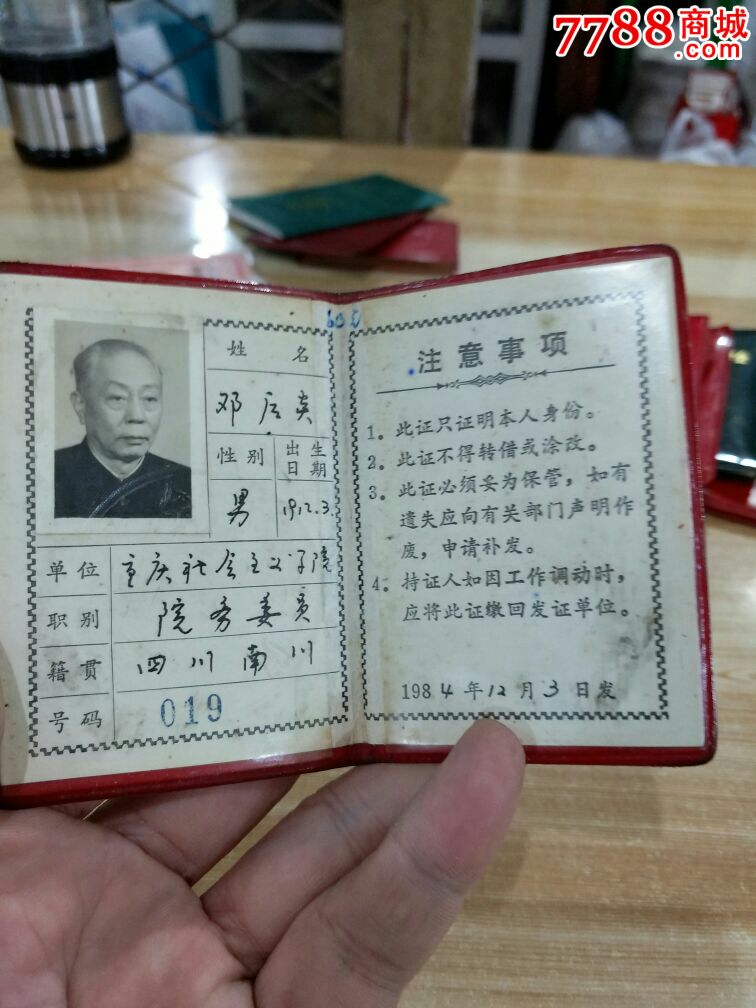 7788商城
.com
姓 名
邓后炎
性别
出生
日期
男
1912.3.
单位
重庆社会主义学院
职别
院务委员
籍贯
四川南川
号码
019
注意事项
1。此证只证明本人身份。
2。此证不得转借或涂改。
3。此证必须妥为保管，如有
遗失应向有关部门声明作
废，申请补发。
4。持证人如因工作调动时，
应将此证缴回发证单位。
1984年12月3日发